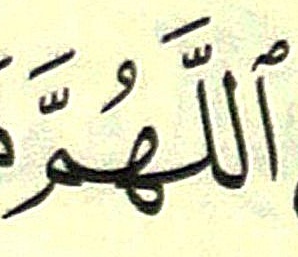 ٱللَّهُمَّ